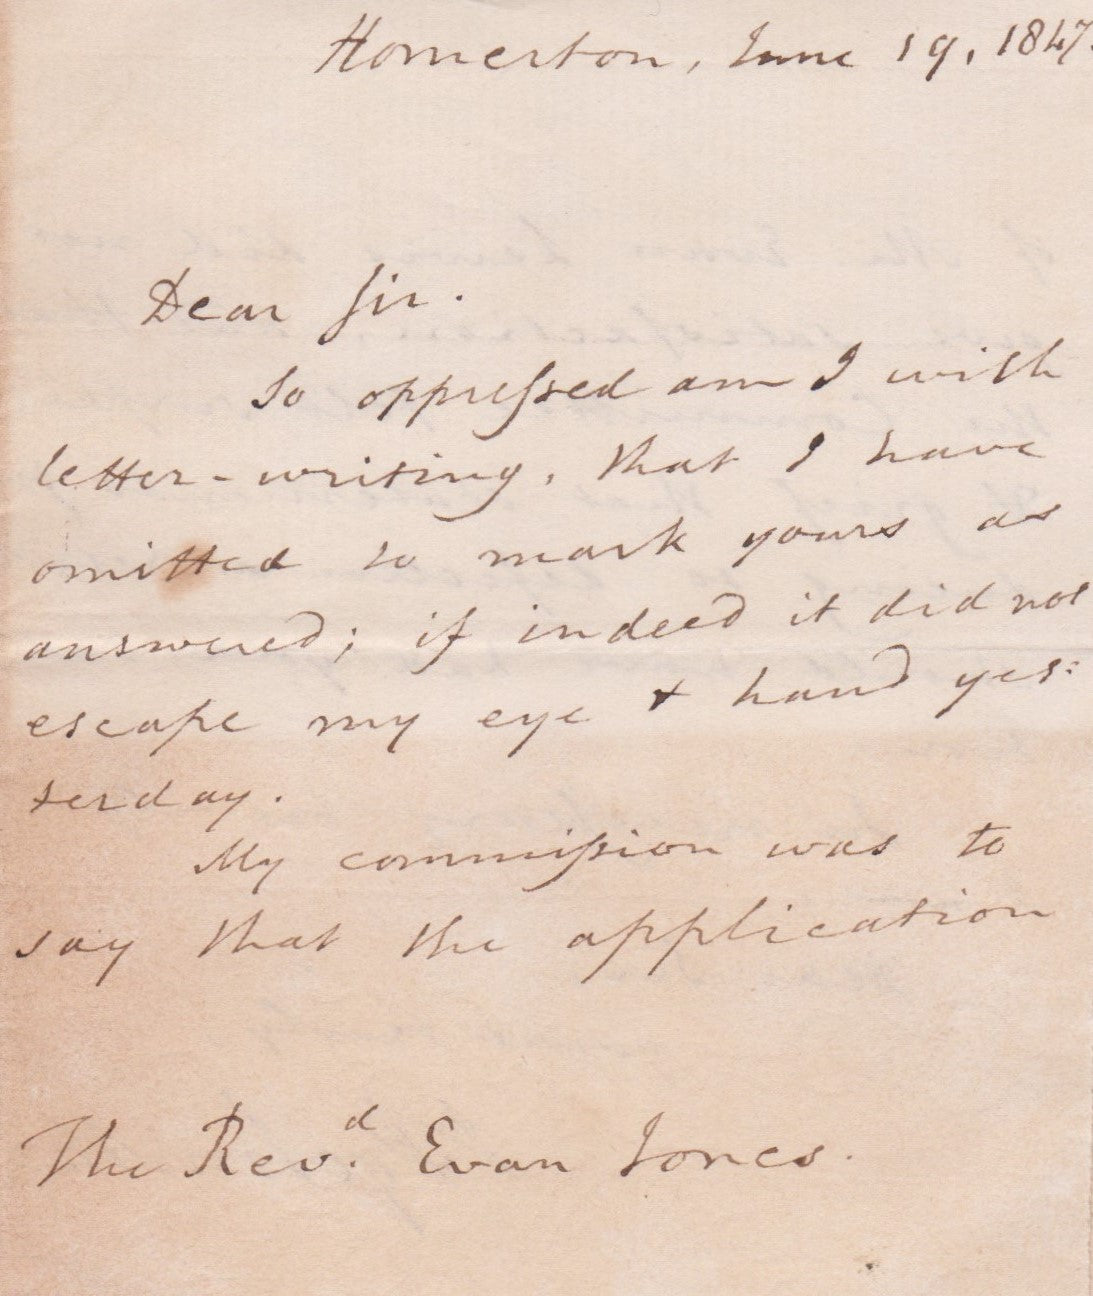 Homerton, June 19, 1847.
Dear Sir.
So oppreſsed am I with
letter-writing, that I have
omitted to mark yours as
answered; if indeed it did not
escape my eye & hand yes:
terday.
My commiſsion was to
say that the application
The Rev.d Evan Jones.